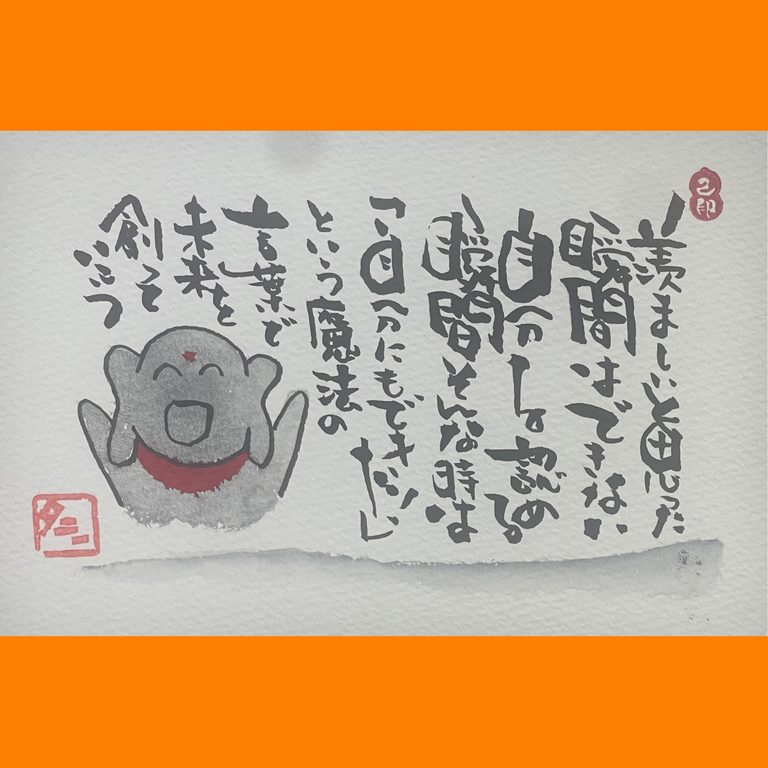 羨ましいと思った
瞬間はできない
自分を認める
瞬間そんな時は
「自分にもできた!」
という魔法の
言葉で
未来を
創って
いこう